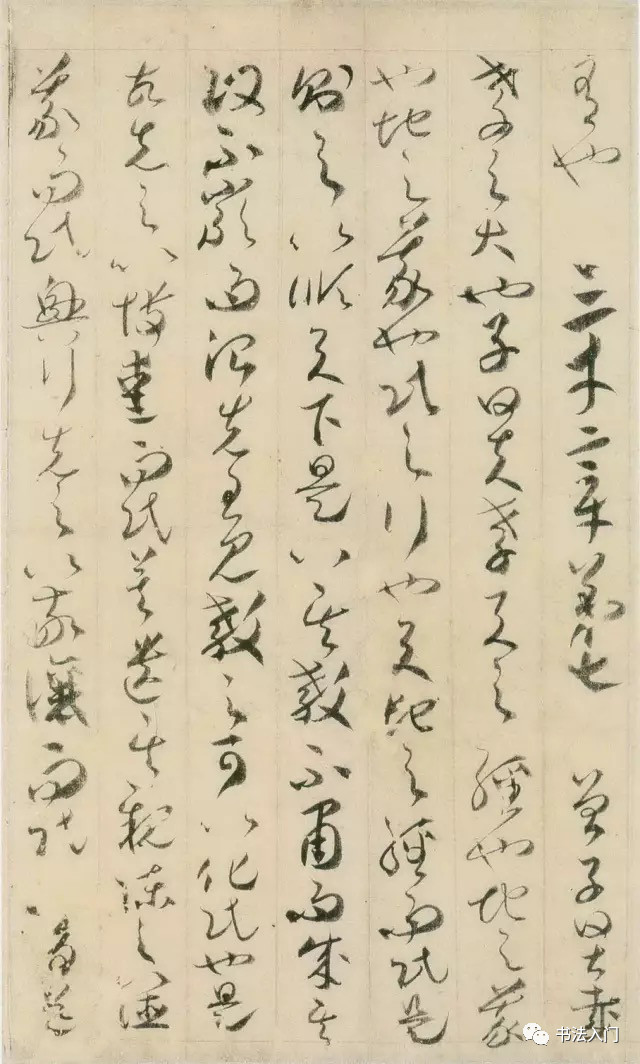 有也　三才章第七　曾子曰甚哉
孝之大也子曰夫孝天之經也地之義
也地之義也民之行也天地之經而民是
則之以順天下是以其教不肅而成其
政不嚴而治先王見教之可以化民也是
故先之以博愛而民莫遺其親陳之以德
義而民興行先之以敬讓而民
书法入门